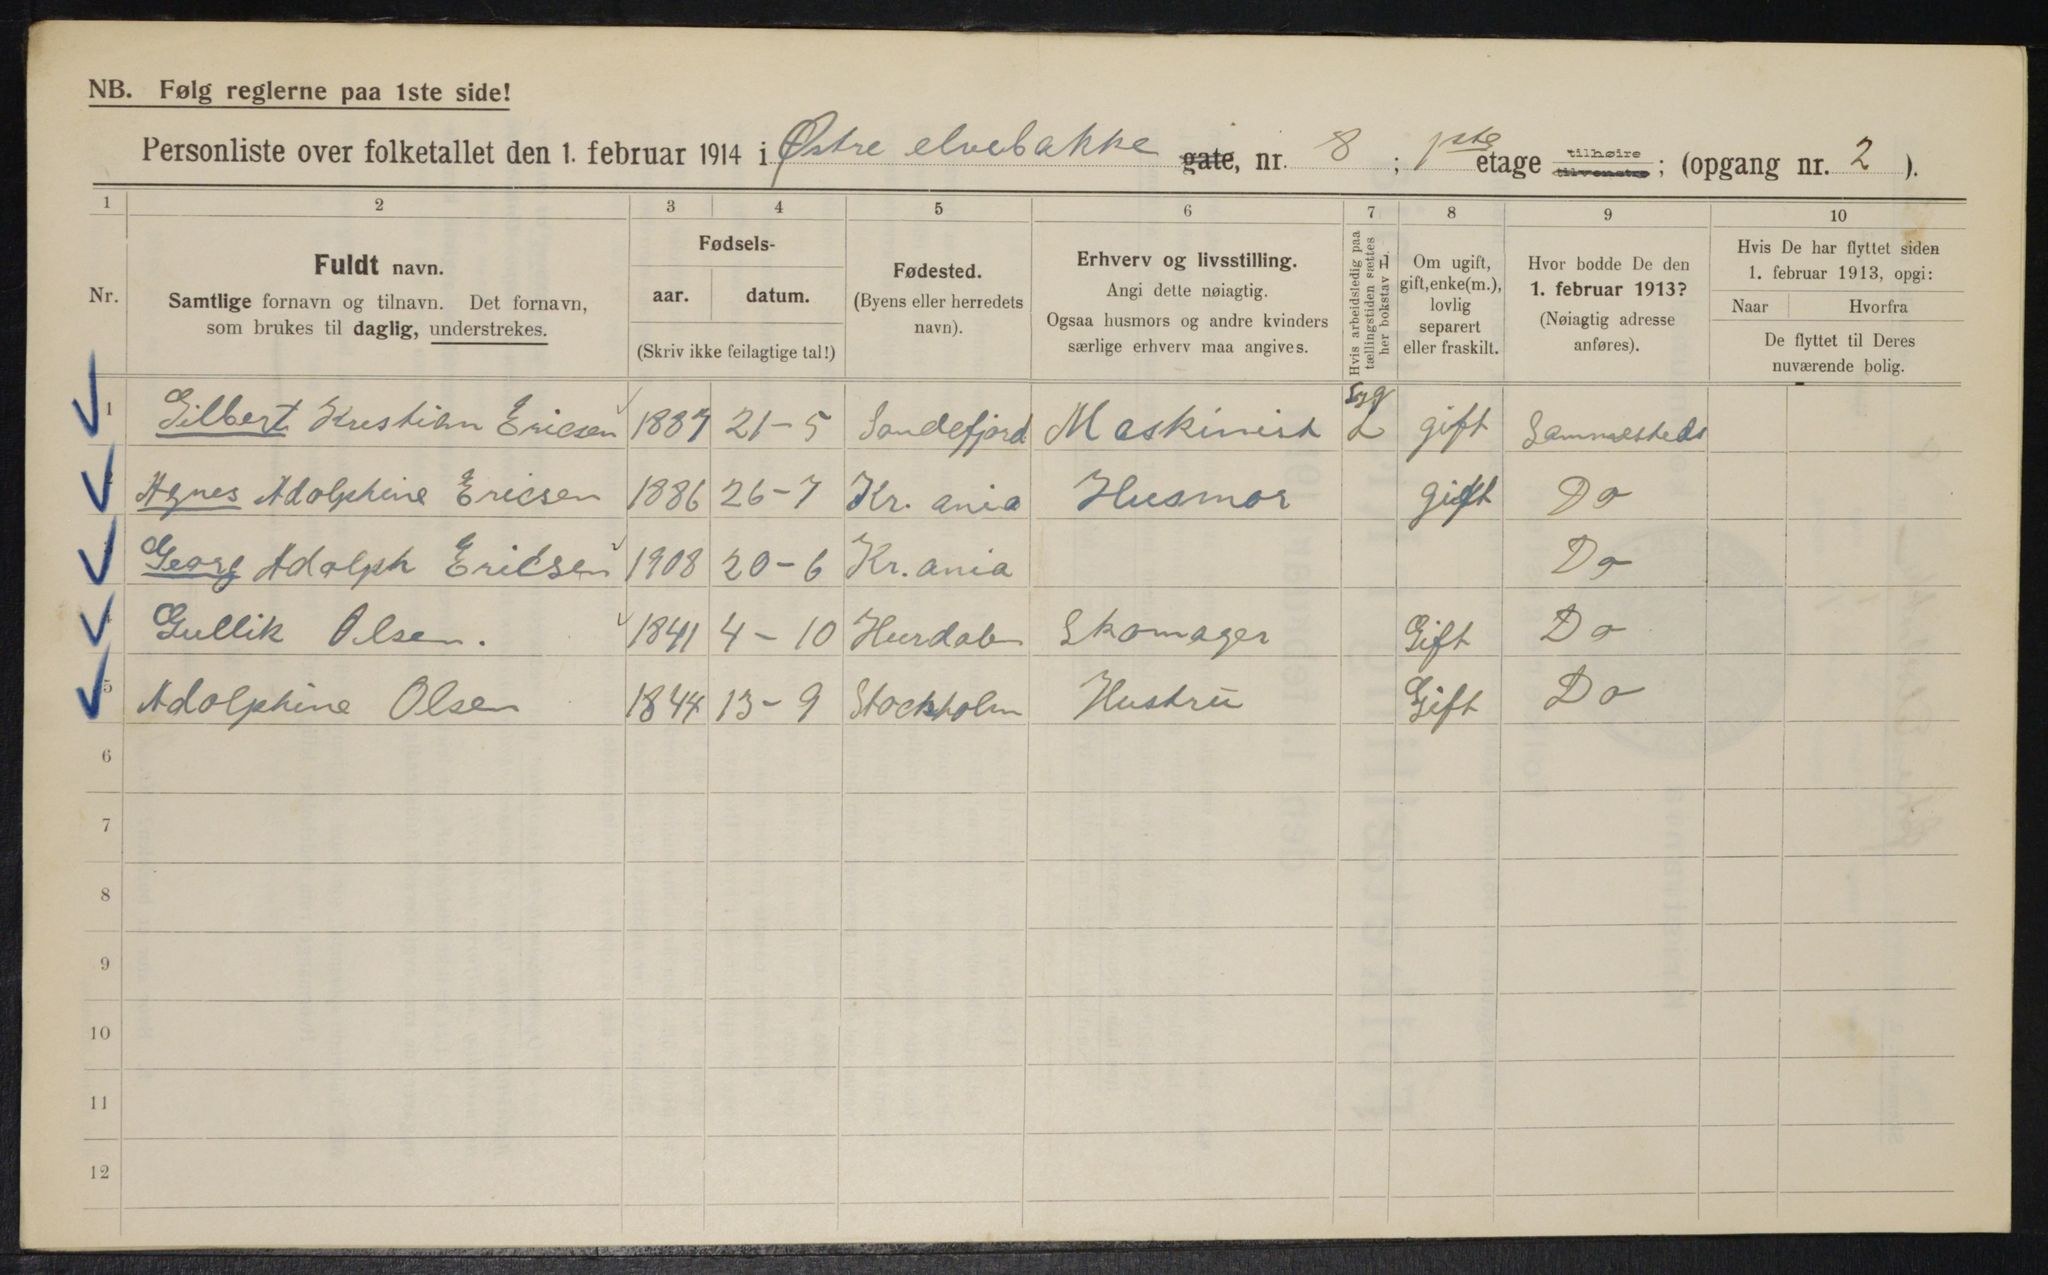 NB. Følg reglerne paa 1ste side!
Personliste over folketallet den 1. februar 1914 i Østre elvebakke gate, nr. 8 ; 1ste etage tilhøire tilvenstre ; (opgang nr. 2 ).
1 2 3 4 5 6 7 8 9 10
Nr.
Fuldt navn.
Samtlige fornavn og tilnavn. Det fornavn,
som brukes til daglig, understrekes.
Fødsels-
aar. datum.
(Skriv ikke feilagtige tal!)
Fødested.
(Byens eller herredets
navn).
Erhverv og livsstilling.
Angi dette nøiagtig.
Ogsaa husmors og andre kvinders
særlige erhverv maa angives.
Hvis arbeidsledig paa
tællingstiden sættes
her bokstav L.
Om ugift,
gift, enke(m.),
lovlig
separert
eller fraskilt.
Hvor bodde De den
1. februar 1913?
(Nøiagtig adresse
anføres).
Hvis De har flyttet siden
1. februar 1913, opgi:
Naar Hvorfra
De flyttet til Deres
nuværende bolig.
1 Gilbert Kristian Ericsen 1887 21-5 Sandefjord Maskinist Syg L gift Sammesteds
2 Agnes Adolphine Ericsen 1886 26-7 Kr.ania Husmor gift Do
3 Georg Adolph Ericsen 1908 20-6 Kr.ania Do
4 Gullik Olsen. 1841 4-10 Hurdalen Skomager Gift Do
5 Adolphine Olsen 1844 13-9 Stockholm Hustru Gift Do
6
7
8
9
10
11
12